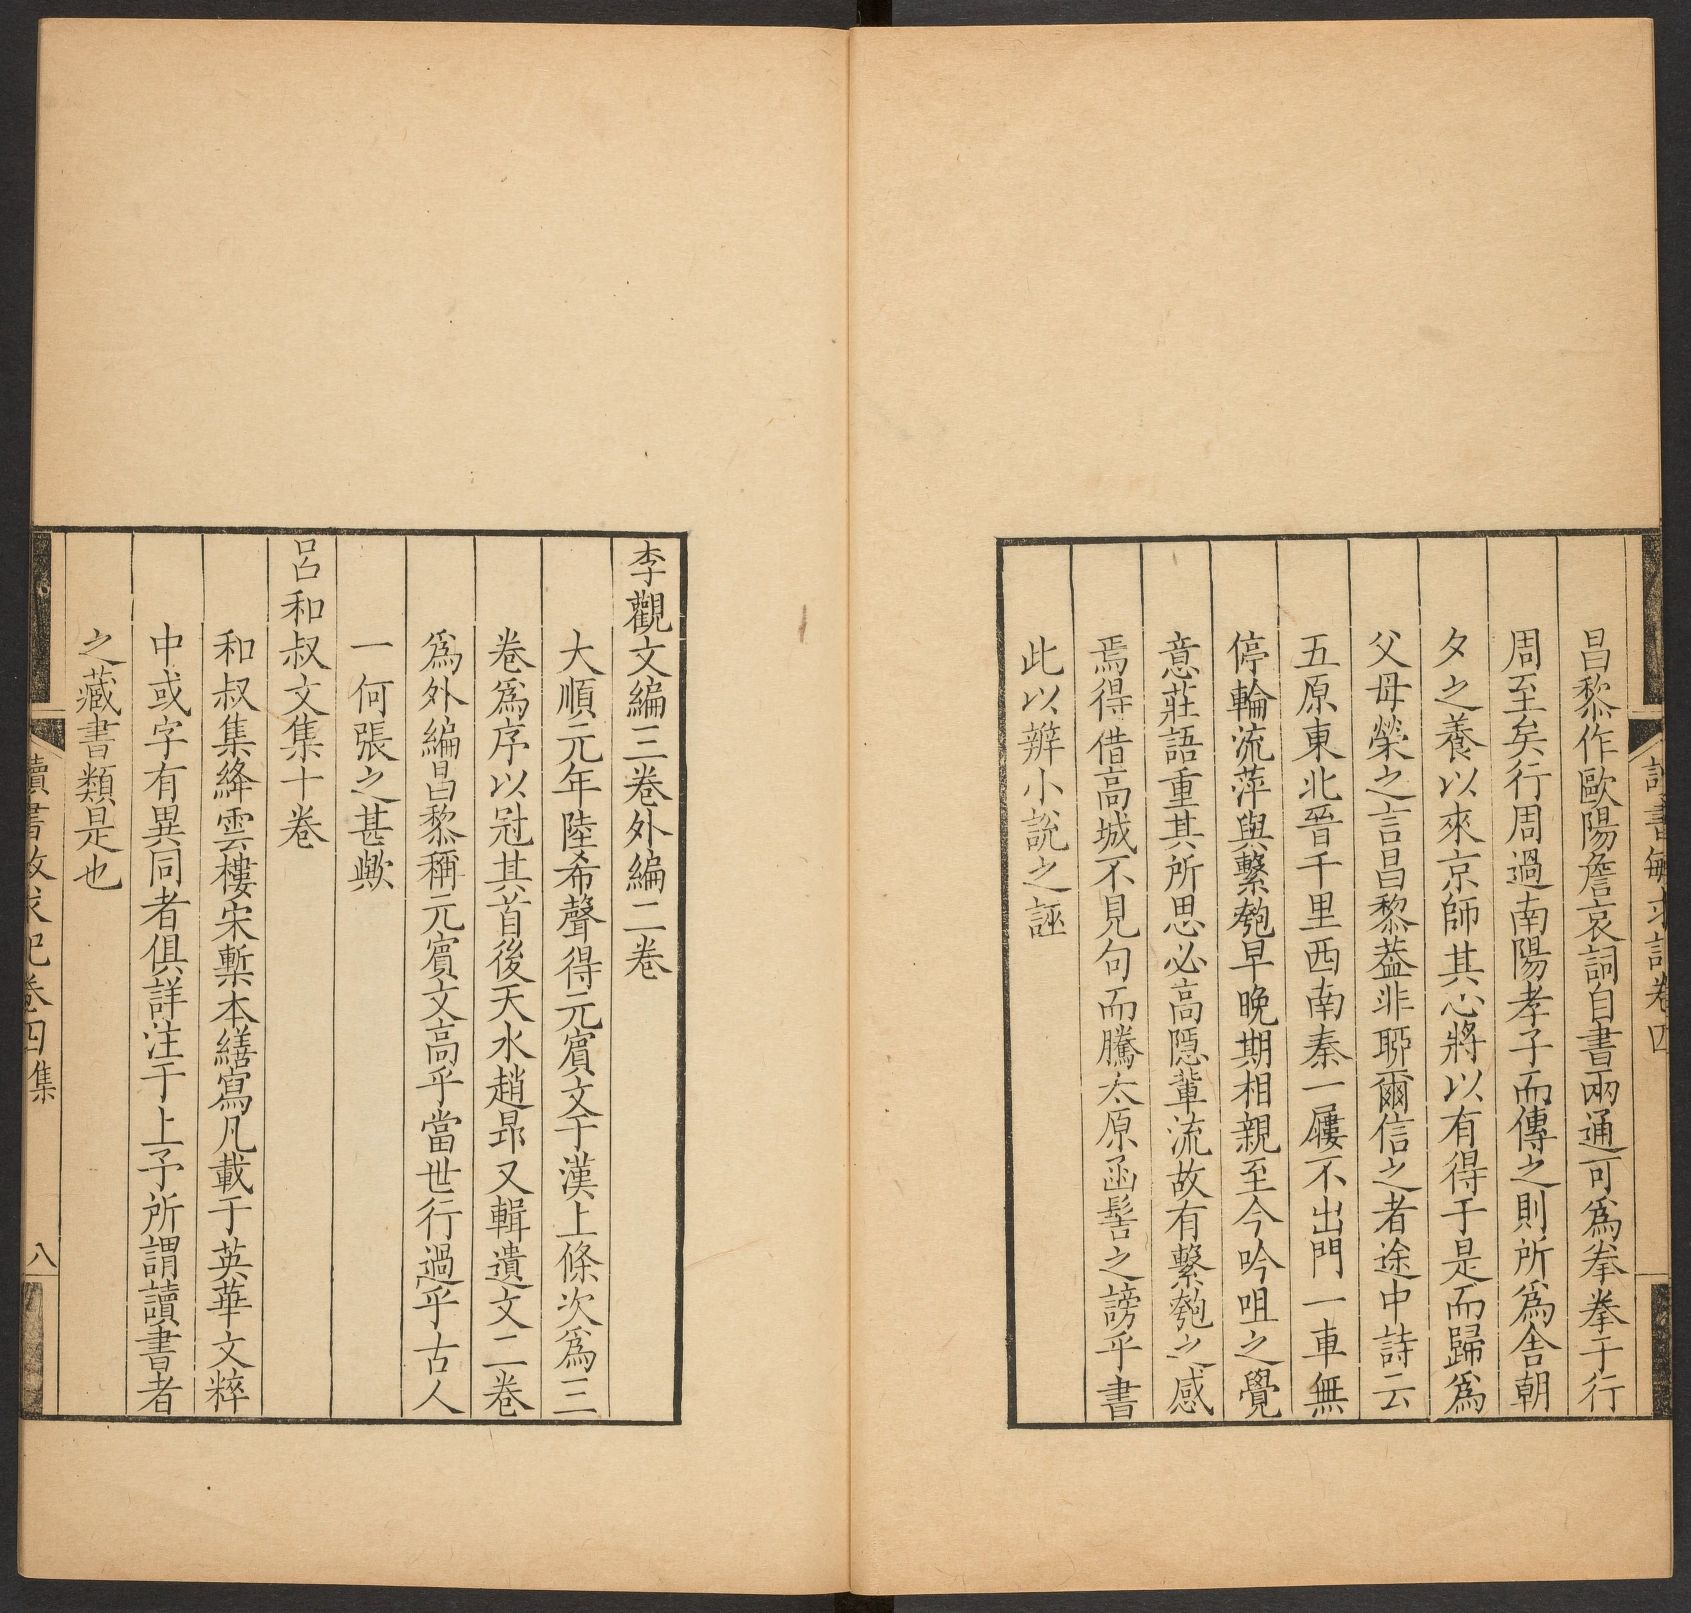 讀書敏求記卷四
昌黎作歐陽詹哀詞自書兩通可爲拳拳于行
周至矣行周過南陽孝子而傳之則所爲舍朝
夕之養以來京師其心將以有得于是而歸爲
父母榮之言昌黎葢非聊爾信之者途中詩云
五原東北晉千里西南秦一屨不出門一車無
停輪流萍與繫匏早晚期相親至今吟咀之覺
意莊語重其所思必高隱輩流故有繫匏之感
焉得借高城不見句而騰太原函髻之謗乎書
此以辧小說之誣
李觀文編三卷外編二卷
大順元年陸希聲得元賓文于漢上條次爲三
卷爲序以冠其首後天水趙昂又輯遺文二卷
爲外編昌黎稱元賓文高乎當世行過乎古人
一何張之甚歟
呂和叔文集十卷
和叔集絳雲樓宋槧本繕寫凡載于英華文粹
中或字有異同者俱詳注于上予所謂讀書者
之藏書類是也
讀書敏求記卷四集
八